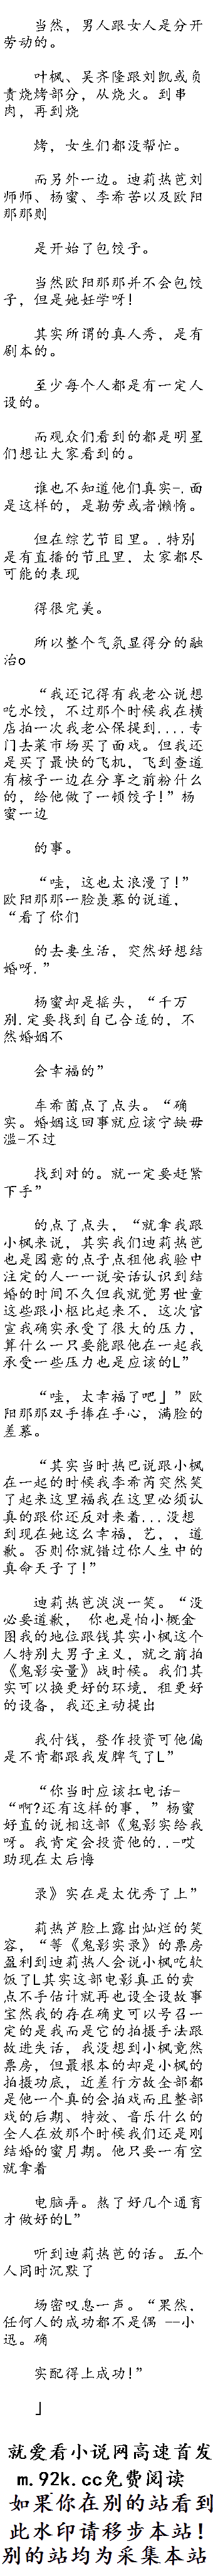 当然，男人跟女人是分开
劳动的。
叶枫、吴齐隆跟刘凯或负
责烧烤部分，从烧火。到串
肉，再到烧
烤，女生们都没帮忙。
而另外一边。迪莉热芭刘
师师、杨蜜、李希苦以及欧阳
那那则
是开始了包饺子。
当然欧阳那那并不会包饺
子，但是她妊学呀！
其实所谓的真人秀，是有
剧本的。
至少每个人都是有一定人
设的。
而观众们看到的都是明星
们想让大家看到的。
谁也不知道他们真实-.面
是这样的，是勒劳或者懒惰。
但在综艺节目里。.特别
是有直播的节且里，太家都尽
可能的表现
得很完美。
所以整个气氛显得分的融
治o
“我还记得有我老公说想
吃水饺，不过那个时候我在横
店拍一次我老公保提到....专
门去菜市场买了面戏。但我还
是买了最快的飞机，飞到查道
有核子一边在分享之前粉什么
的，给他做了一顿饺子!”杨
蜜一边
的事。
“哇，这也太浪漫了!”
欧阳那那一脸羡慕的说道，
“看了你们
的去妻生活，突然好想结
婚呀.”
杨蜜却是摇头，“千万
别.定要找到自己合适的，不
然婚姻不
会幸福的”
车希茵点了点头。“确
实。婚姻这回事就应该宁缺毋
滥-不过
找到对的。就一定要赶紧
下手”
的点了点头，“就拿我跟
小枫来说，其实我们迪莉热芭
也是园意的点子点租他我验中
注定的人一一说安话认识到结
婚的时间不久但我就觉男世童
这些跟小枢比起来不，这次官
宣我确实承受了很大的压力，
算什么一只要能跟他在一起我
承受一些压力也是应该的L”
“哇，太幸福了吧」”欧
阳那那双手捧在手心，满脸的
差慕。
“其实当时热巴说跟小枫
在一起的时候我李希芮突然笑
了起来这里福我在这里必须认
真的跟你还反对来着...没想
到现在她这么幸福，艺，，道
歉。否则你就错过你人生中的
真命天子了!”
迪莉热芭淡淡一笑。“没
必要道歉， 你也是怕小概金
图我的地位跟钱其实小枫这个
人特别大男子主义，就之前拍
《鬼影安量》战时候。我们其
实可以换更好的环境，租更好
的设备，我还主动提出
我付钱，登作投资可他偏
是不肯都跟我发脾气了L”
“你当时应该扛电话-
“啊?还有这样的事，”杨蜜
好直的说相这部《鬼影实给我
呀。我肯定会投资他的..-哎
助现在太后悔
录》实在是太优秀了上”
莉热芦脸上露出灿烂的笑
容，“等《鬼影实录》的票房
盈利到迪莉热人会说小枫吃软
饭了L其实这部电影真正的卖
点不手估计就再也设全设故事
宝然我的存在确史可以号召一
定的是我而是它的拍摄手法跟
故进失话，我没想到小枫竟然
票房，但最根本的却是小枫的
拍摄功底，近差行方故全部都
是他一个真的会拍戏而且整部
戏的后期、特效、音乐什么的
全人在放那个时候我们还是刚
结婚的蜜月期。他只要一有空
就拿着
电脑弄。熬了好几个通育
才做好的L”
听到迪莉热芭的话。五个
人同时沉默了
场密叹息一声。“果然，
任何人的成功都不是偶 一一小
迅。确
实配得上成功!”
」
就爱看小说网高速首发
m.92k.cc免费阅读
如果你在别的站看到
此水印请移步本站！
别的站均为采集本站